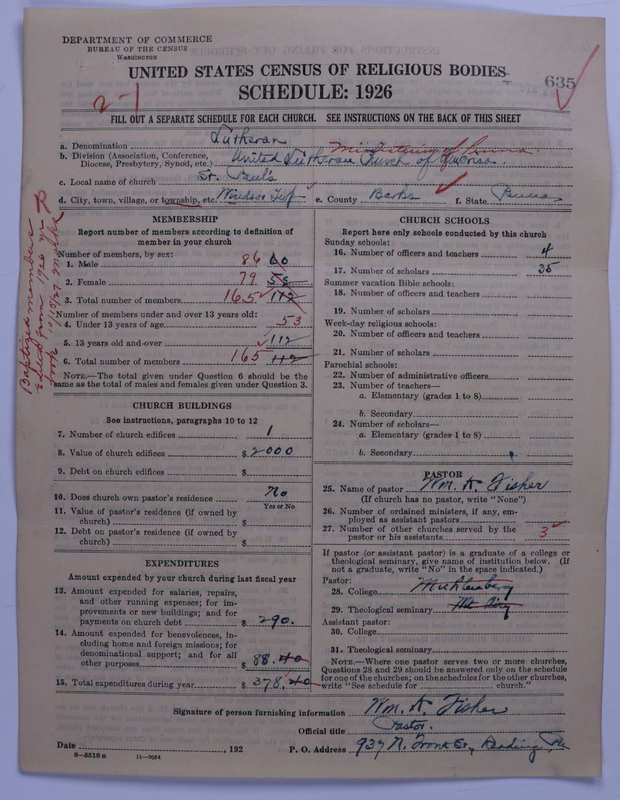 DEPARTMENT OF COMMERCE
BUREAU OF THE CENSUS
WASHINGTON
UNITED STATES CENSUS OF RELIGIOUS BODIES
SCHEDULE: 1926
635
2-1
FILL OUT A SEPARATE SCHEDULE FOR EACH CHURCH. SEE INSTRUCTIONS ON THE BACK OF THIS SHEET
a. Denomination Lutheran
b. Division (Association, Conference, Diocese, Presbytery, Synod, etc.) United Lutheran Church of America. Ministerium of Penna
c. Local name of church St. Paul's
d. City, town, village, or township, etc. Windsor Twp e. County Berks f. State Penna
MEMBERSHIP
Report number of members according to definition of
member in your church
Number of members, by sex:
1. Male 86 60
2. Female 79 52
3. Total number of members 165 112
Number of members under and over 13 years old:
4. Under 13 years of age 53
5. 13 years old and over 112
6. Total number of members 165 112
NOTE.—The total given under Question 6 should be the
same as the total of males and females given under Question 3.
Baptized members
added from 1926 yr
book 10/19/27
CHURCH BUILDINGS
See instructions, paragraphs 10 to 12
7. Number of church edifices 1
8. Value of church edifices $ 2000
9. Debt on church edifices $
10. Does church own pastor's residence No
Yes or No
11. Value of pastor's residence (if owned by
church) $
12. Debt on pastor's residence (if owned by
church) $
EXPENDITURES
Amount expended by your church during last fiscal year
13. Amount expended for salaries, repairs,
and other running expenses; for im-
provements or new buildings; and for
payments on church debt $ 290.
14. Amount expended for benevolences, in-
cluding home and foreign missions; for
denominational support; and for all
other purposes $ 88.40
15. Total expenditures during year $ 378.40
CHURCH SCHOOLS
Report here only schools conducted by this church
Sunday schools:
16. Number of officers and teachers 4
17. Number of scholars 35
Summer vacation Bible schools:
18. Number of officers and teachers
19. Number of scholars
Week-day religious schools:
20. Number of officers and teachers
21. Number of scholars
Parochial schools:
22. Number of administrative officers
23. Number of teachers—
a. Elementary (grades 1 to 8)
b. Secondary
24. Number of scholars—
a. Elementary (grades 1 to 8)
b. Secondary
PASTOR
25. Name of pastor Wm. K. Fisher
(If church has no pastor, write "None")
26. Number of ordained ministers, if any, em-
ployed as assistant pastors
27. Number of other churches served by the
pastor or his assistants 3
If pastor (or assistant pastor) is a graduate of a college or
theological seminary, give name of institution below. (If
not a graduate, write "No" in the space indicated.)
Pastor:
28. College Muhlenberg
29. Theological seminary Mt. Airy
Assistant pastor:
30. College
31. Theological seminary
NOTE.—Where one pastor serves two or more churches,
Questions 28 and 29 should be answered only on the schedule
for one of the churches; on the schedules for the other churches,
write "See schedule for church."
Signature of person furnishing information Wm. K. Fisher
Official title Pastor.
Date , 192 P. O. Address 937 N. Front St., Reading, Pa
8—5518a 11—9054